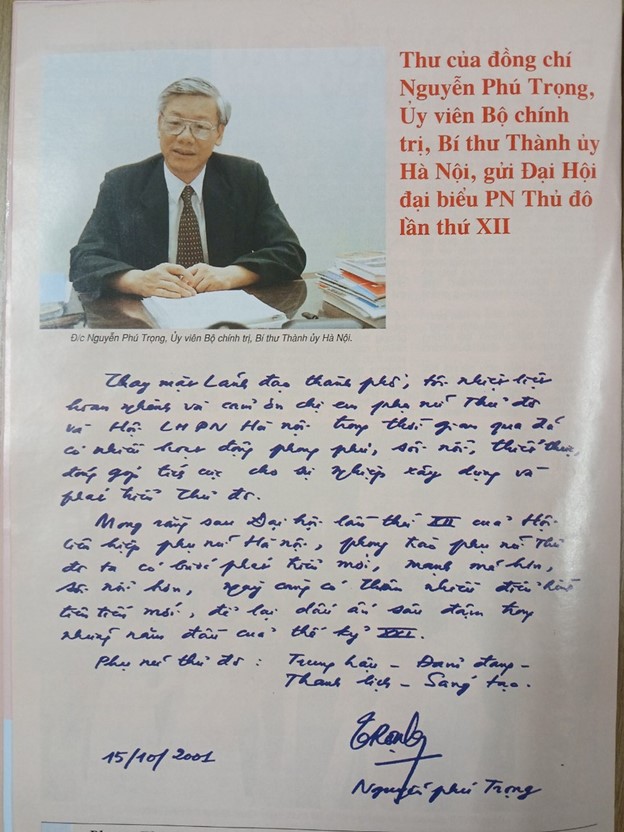 Thư của đồng chí
Nguyễn Phú Trọng,
Ủy viên Bộ chính
trị, Bí thư Thành ủy
Hà Nội, gửi Đại Hội
đại biểu PN Thủ đô
lần thứ XII
Đ/c Nguyễn Phú Trọng, Ủy viên Bộ chính trị, Bí thư Thành ủy Hà Nội.
Thay mặt Lãnh đạo thành phố, tôi nhiệt liệt
hoan nghênh và cảm ơn chị em phụ nữ Thủ đô
và Hội LHPN Hà nội trong thời gian qua đã
có nhiều hoạt động phong phú, sôi nổi, thiết thực,
đóng góp tích cực cho sự nghiệp xây dựng và
phát triển Thủ đô.
Mong rằng sau Đại hội lần thứ XII của Hội
liên hiệp phụ nữ Hà nội, phong trào phụ nữ Thủ
đô ta có bước phát triển mới, mạnh mẽ hơn,
sôi nổi hơn, ngày càng có thêm nhiều điển hình
tiên tiến mới, để lại dấu ấn sâu đậm trong
những năm đầu của thế kỷ XXI.
Phụ nữ thủ đô : Trung hậu - Đảm đang -
Thanh lịch - Sáng tạo.
15/10/2001
Trọng
Nguyễn phú Trọng